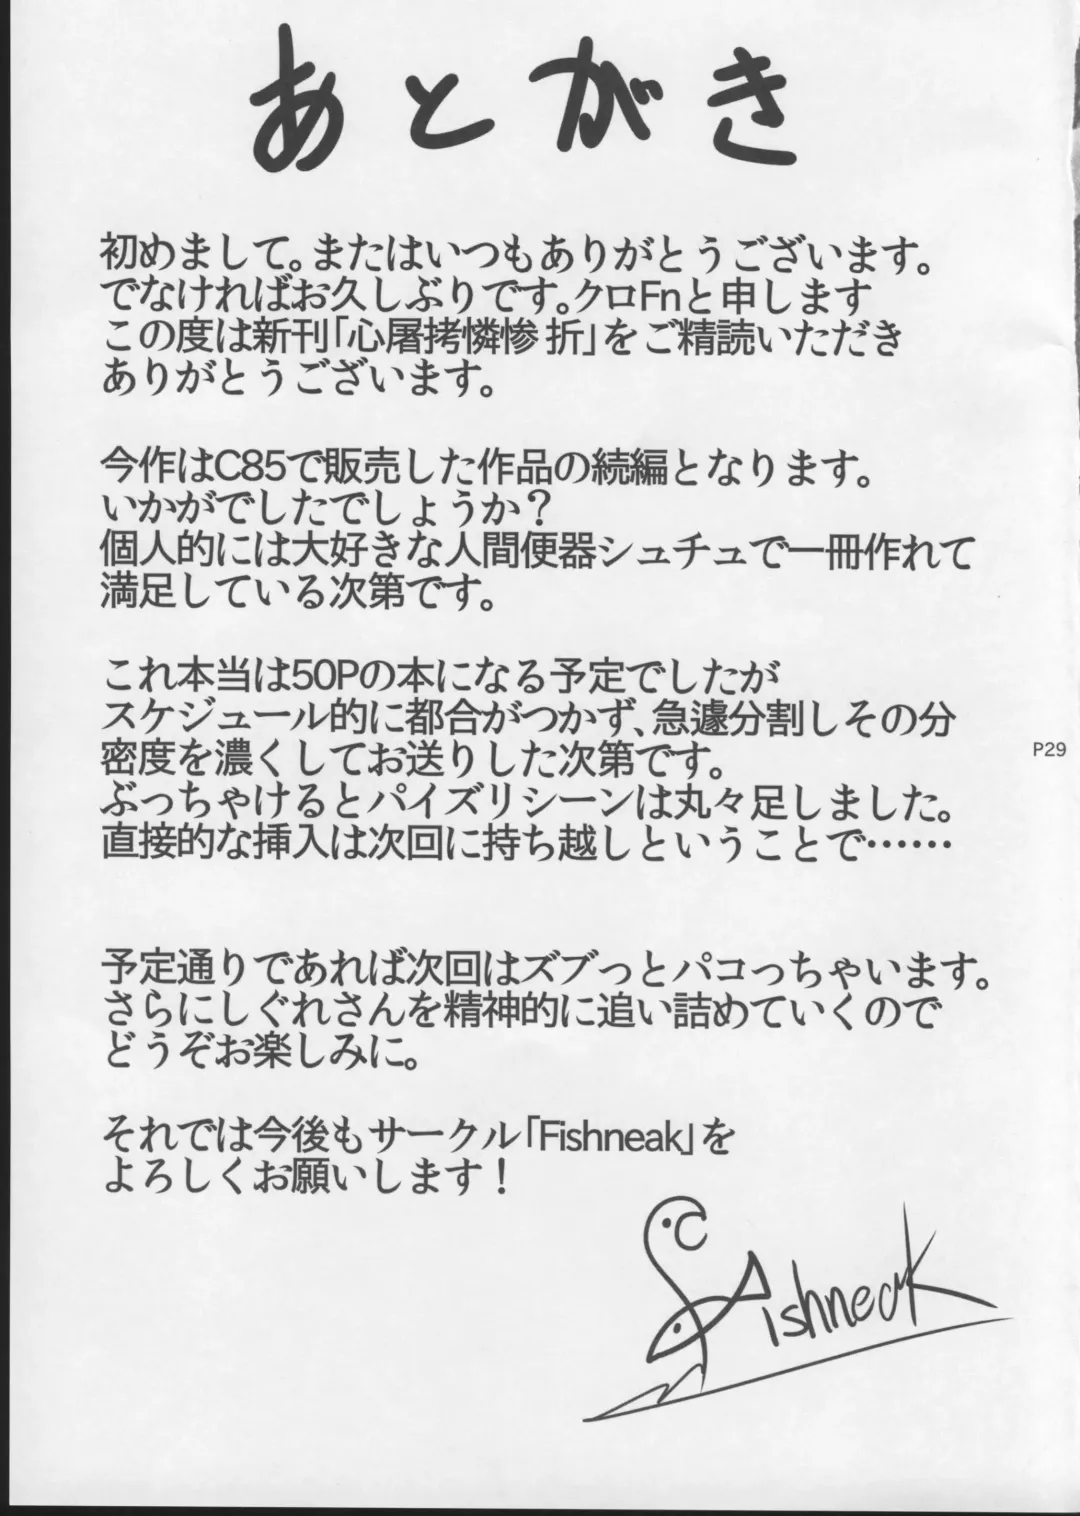 あとがき
初めまして。またはいつもありがとうございます。
でなければお久しぶりです。クロFnと申します
この度は新刊「心屠拷憐惨 折」をご精読いただき
ありがとうございます。
今作はC85で販売した作品の続編となります。
いかがでしたでしょうか？
個人的には大好きな人間便器シュチュで一冊作れて
満足している次第です。
これ本当は50Pの本になる予定でしたが
スケジュール的に都合がつかず、急遽分割しその分
密度を濃くしてお送りした次第です。
ぶっちゃけるとパイズリシーンは丸々足しました。
直接的な挿入は次回に持ち越しということで……
P29
予定通りであれば次回はズブっとパコっちゃいます。
さらにしぐれさんを精神的に追い詰めていくので
どうぞお楽しみに。
それでは今後もサークル「Fishneak」を
よろしくお願いします！
Fishneak